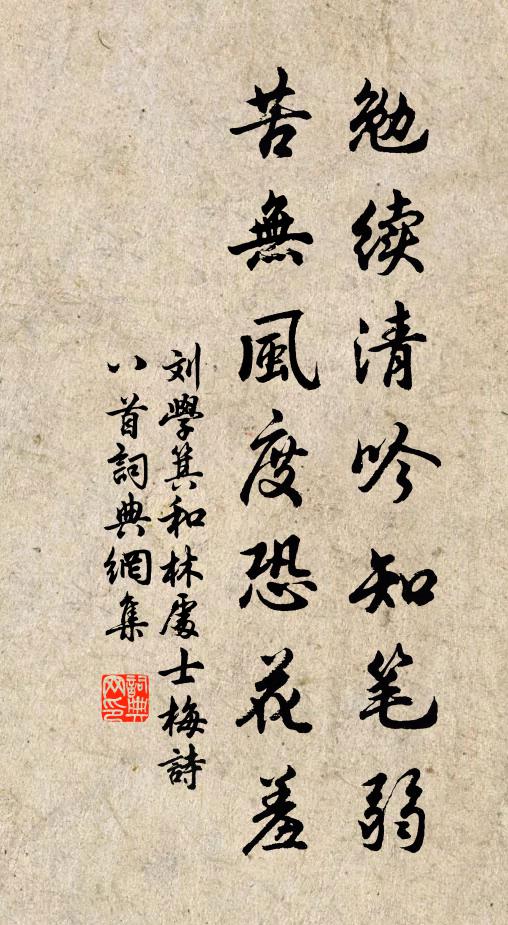 勉续清吟知笔弱
苦無風度恐花羞
刘學箕和林處士梅詩
八首詞典網集
詞典
网印